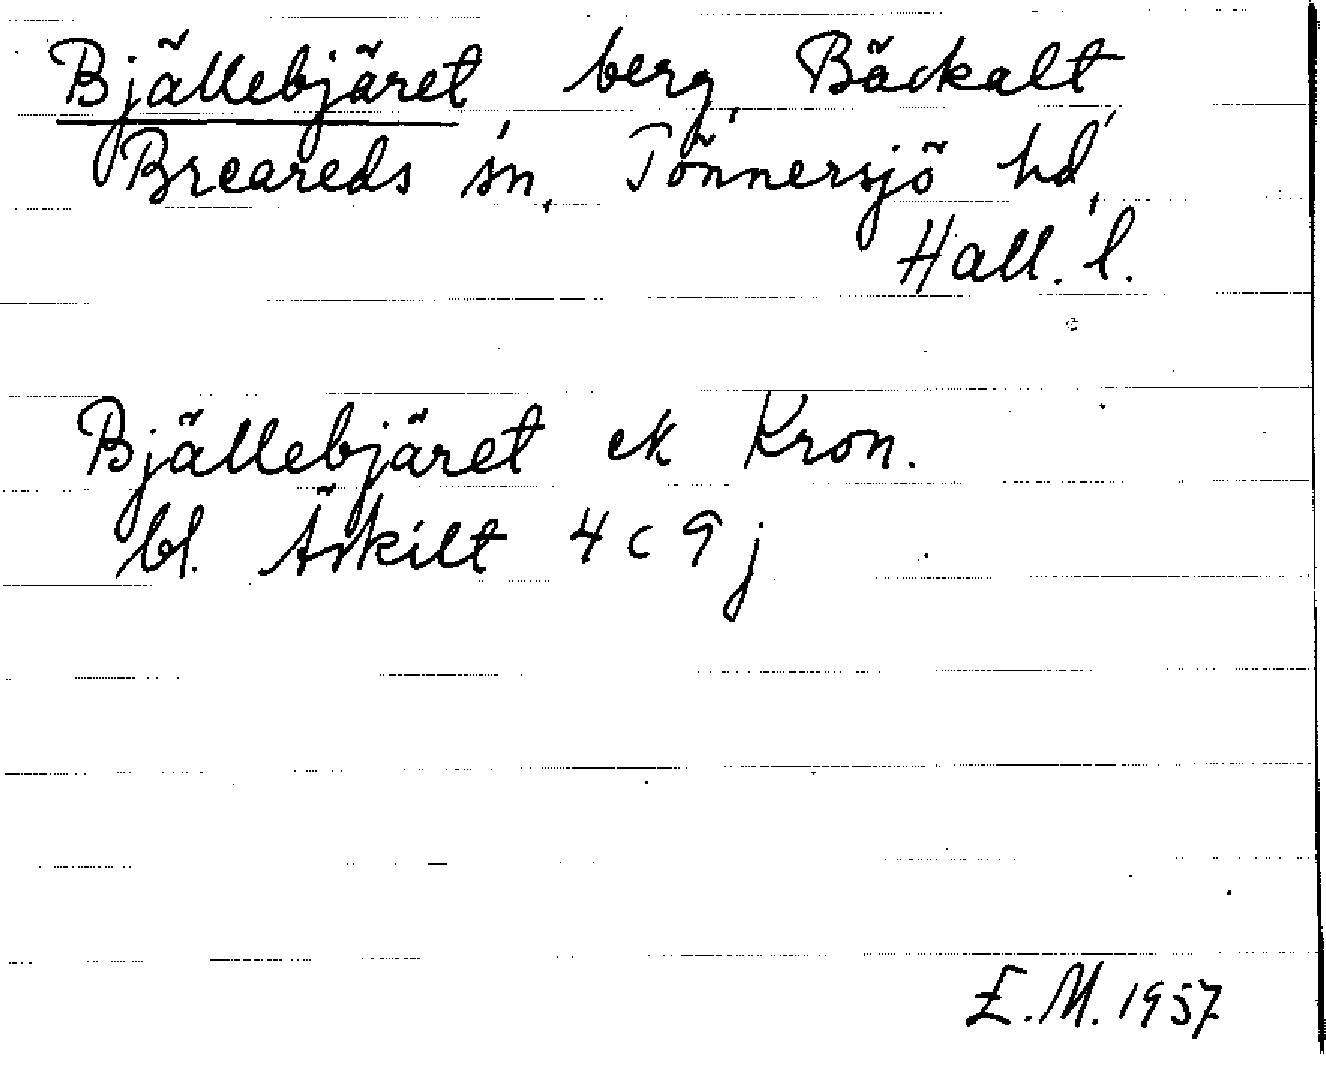 Bjällebjäret berg, Bäckalt,
Breareds sn, Tönnersjö hd,
Hall. l.
Bjällebjäret ek Kron.
bl. Äskilt 4 c 9 j
E.M. 1957